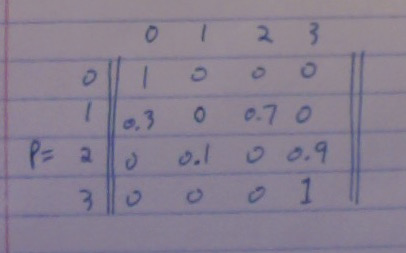 0 1 2 3
0 1 0 0 0
1 0.3 0 0.7 0
P= 2 0 0.1 0 0.9
3 0 0 0 1